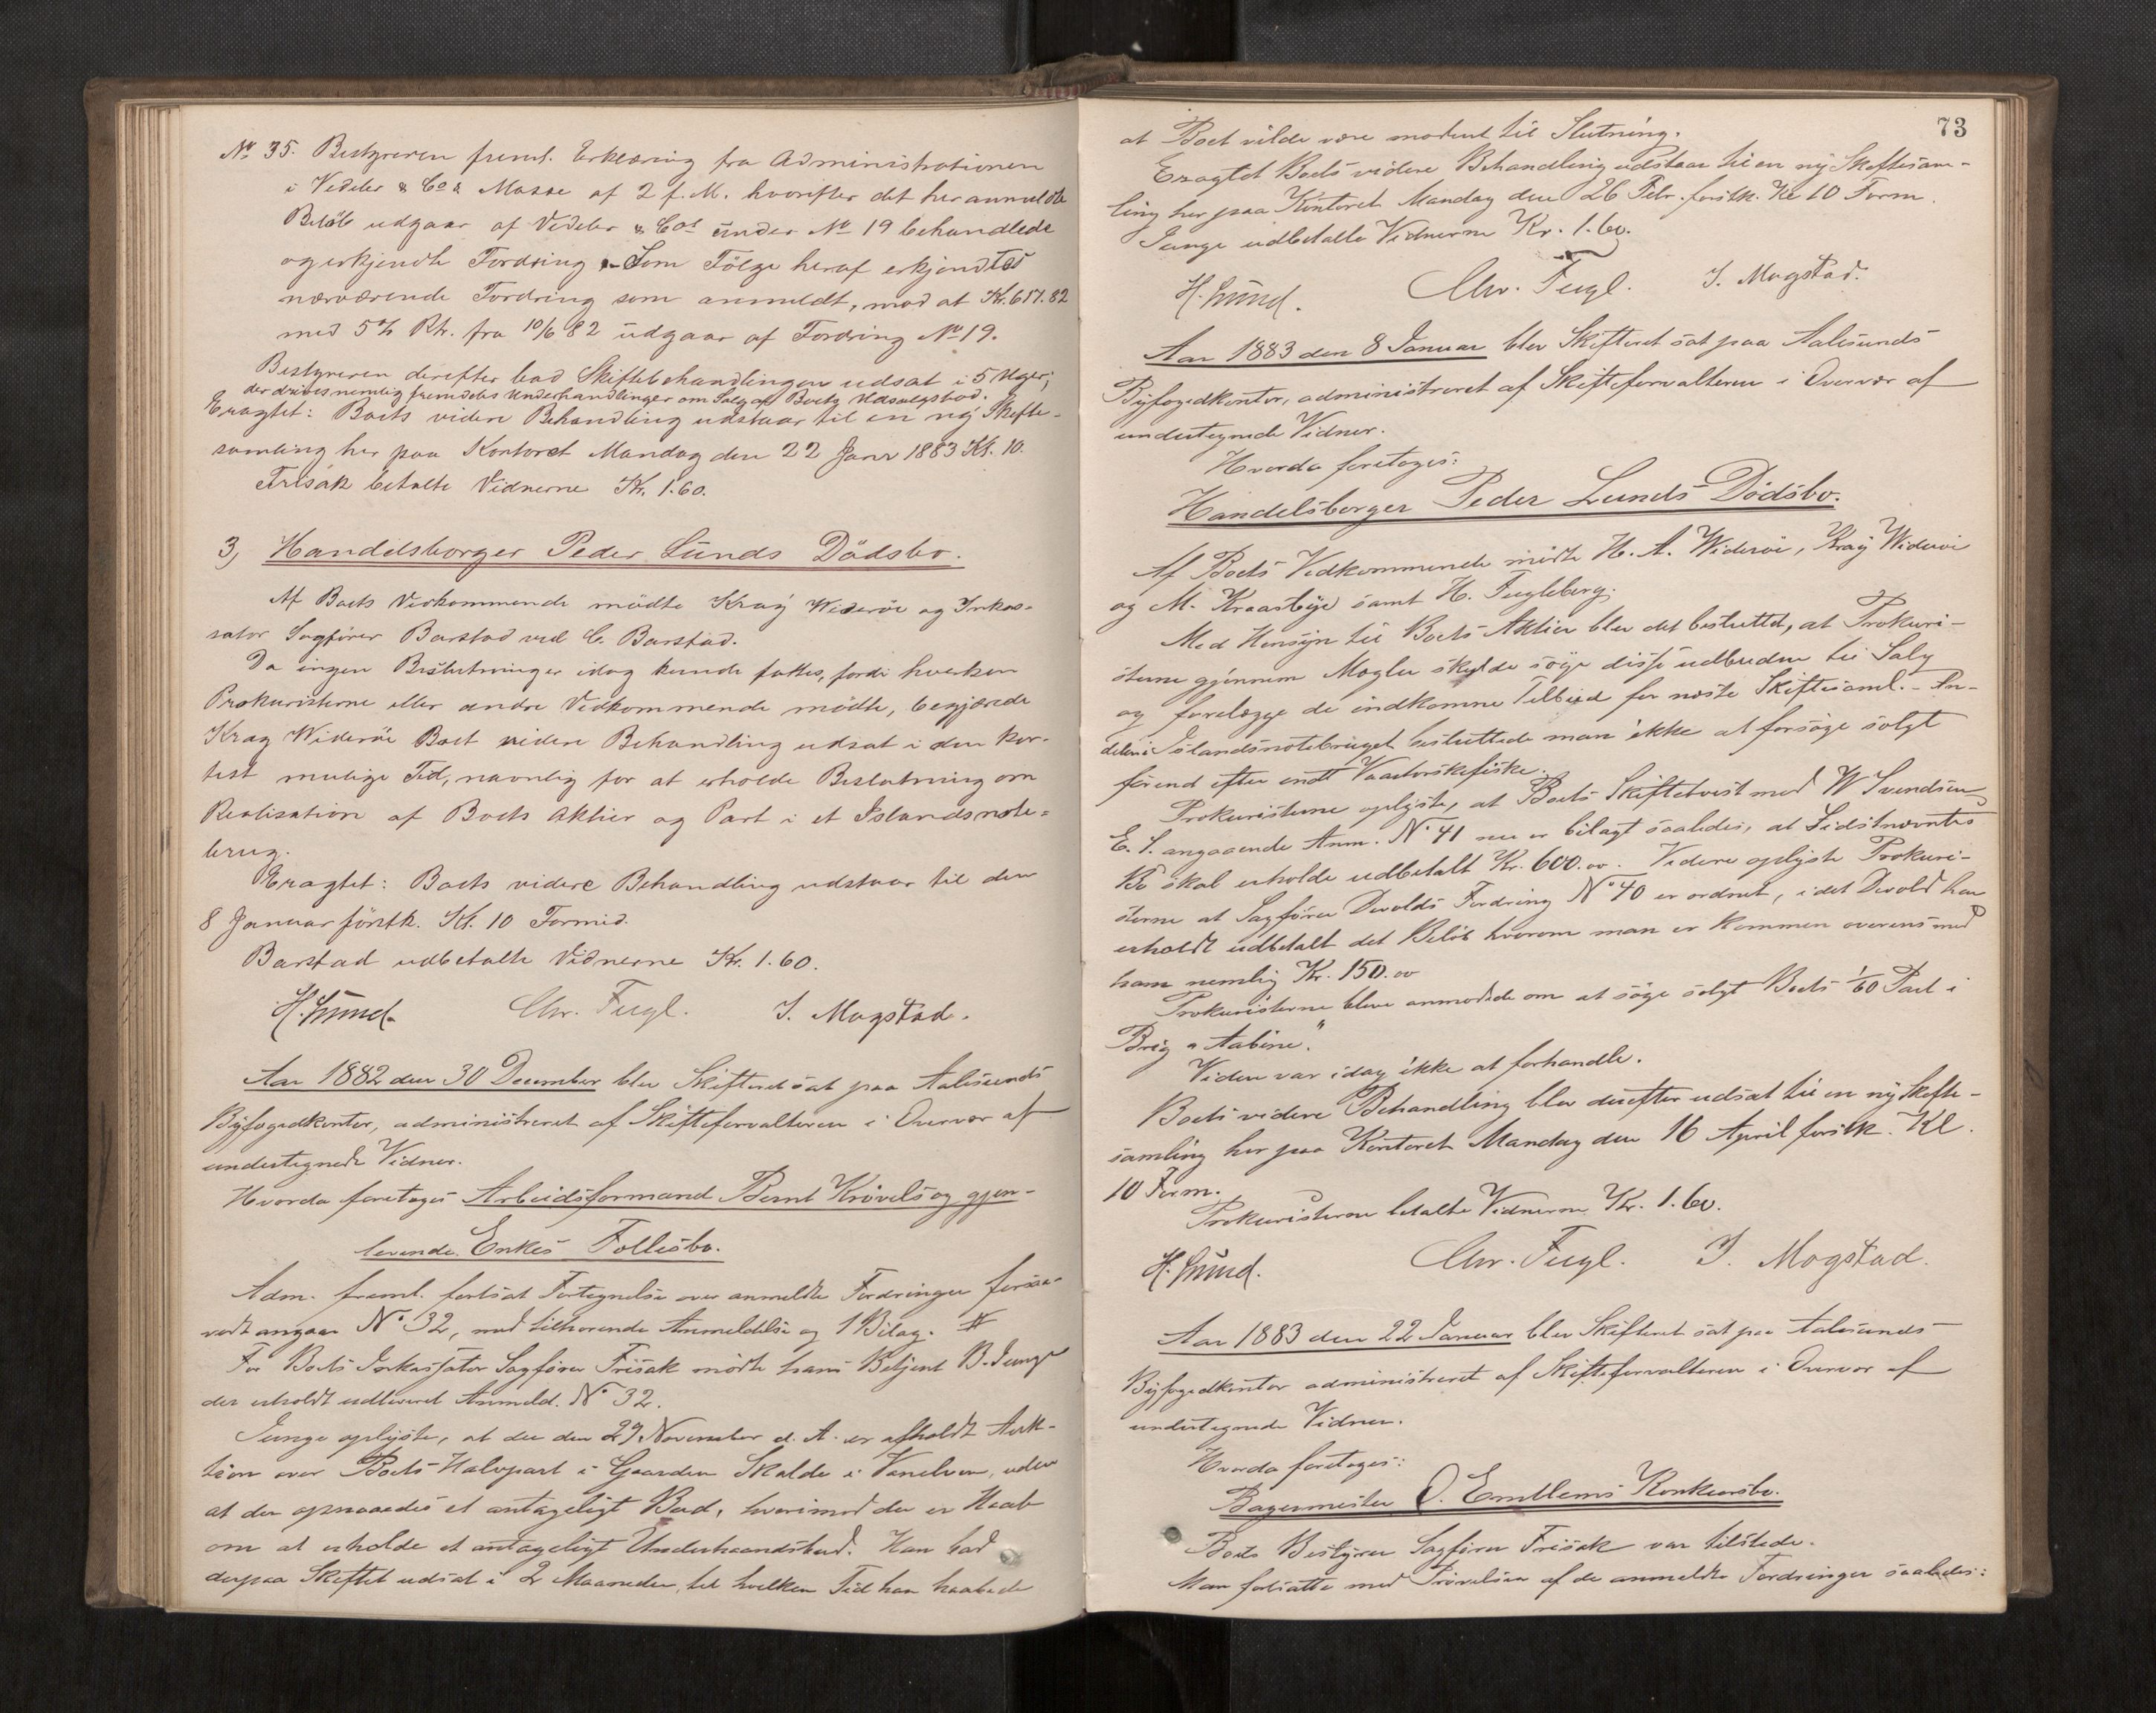 No 35. Bestyreren freml. Erklæring fra Administrationen
i Vedeler & Cos Masse af 2 f. M. hvorefter det her anmeldte
Beløb udgaar af Vedeler & Cos under No 19 behandlede
og erkjendte Fordring. Som Følge heraf erkjendtes
nærværende Fordring som anmeldt, mod at Kr. 657.82
med 5% Rt. fra 10/6 82 udgaar af Fordring No 19.
Bestyreren derefter bad Skiftebehandlingen udsat i 5 Uger;
der drives nemlig fremdeles Underhandlinger om Salg af Boets Udsalgsbod.
Eragtet: Boets videre Behandling udstaar til en ny Skifte-
samling her paa Kontoret Mandag den 22 Janr 1883 Kl. 10.
Frisak betalte Vidnerne Kr. 1.60.
3) Handelsborger Peder Lunds Dødsbo.
Af Boets Vedkommende mødte Krag Widerøe og Inkas-
sator Sagfører Barstad ved C. Barstad.
Da ingen Beslutninger idag kunde fattes, fordi hverken
Prokuristerne eller andre Vedkommende mødte, begjærede
Krag Widerøe Boet videre Behandling udsat i den kor-
test mulige Tid, navnlig for at erholde Beslutning om
Realisation af Boets Aktier og Part i et Islandsnote-
brug.
Eragtet: Boets videre Behandling udstaar til den
8 Januar førstk. Kl. 10 Formid.
Barstad udbetalte Vidnerne Kr. 1.60.
H. Lund. Chr. Fugl. I. Magstad.
Aar 1882 den 30 December blev Skifteret sat paa Aalesunds
Byfogedkontor, administreret af Skifteforvalteren i Overvær af
undertegnede Vidner.
Hvorda foretoges Arbeidsformand Bernt Krøvels og gjen-
levende Enkes Fællesbo.
Adm. freml. fortsat Fortegnelse over anmeldte Fordringer forsaa-
vidt angaar No 32, med tilhørende Anmeldelse og 1 Bilag.
For Boets Inkassator Sagfører Frisak mødte hans Betjent B. Junge
der erholdt udleveret Anmeld. No 32.
Junge oplyste, at der den 27 November d. A. er afholdt Auk-
tion over Boets Halvpart i Gaarden Skalde i Vanelven, uden
at der opnaaedes et antageligt Bud, hvorimod der er Haab
om at erholde et antageligt Underhaandsbud. Han bad
derpaa Skiftet udsat i 2 Maaneder, til hvilken Tid han haabede
73
at Boet vilde være modent til Slutning.
Eragtet Boets videre Behandling udstaar til en ny Skiftesam-
ling her paa Kontoret Mandag den 26 Febr. førstk. Kl 10 Form.
Junge udbetalte Vidnerne Kr. 1.60.
H. Lund. Chr. Fugl. I. Magstad.
Aar 1883 den 8 Januar blev Skifteret sat paa Aalesunds
Byfogedkontor, administreret af Skifteforvalteren i Overvær af
undertegnede Vidner.
Hvorda foretoges:
Handelsborger Peder Lunds Dødsbo.
Af Boets Vedkommende mødte H. A. Widerøe, Krag Widerøe
og M. Kraasbye samt H. Fugleberg.
Med Hensyn til Boets Aktier blev det besluttet, at Prokuri-
sterne gjennem Mægler skulde søge disse udbudne til Salg
og forelægge de indkomne Tilbud for næste Skiftesaml. - An-
delen i Islandsnotebruget besluttede man ikke at forsøge solgt
førend efter endt Vaartorskefiske.
Prokuristerne oplyste, at Boets Skiftetvist med W Svendsen
E. S. angaaende Anm. No 41 nu er bilagt saaledes, at Sidstnævntes
Bo skal erholde udbetalt Kr. 600.00. Videre oplyste Prokuri-
sterne at Sagfører Devolds Fordring No 40 er ordnet, idet Devold har
erholdt udbetalt det Beløb hvorom man er kommen overens med
ham nemlig Kr. 150.00
Prokuristerne bleve anmodede om at søge solgt Boets 1/60 Part i
Brig „Aabine."
Videre var idag ikke at forhandle.
Boets videre Behandling blev derefter udsat til en ny Skifte-
samling her paa Kontoret Mandag den 16 April førstk. Kl.
10 Form.
Prokuristerne betalte Vidnerne Kr. 1.60.
H. Lund. Chr. Fugl. I. Magstad.
Aar 1883 den 22 Januar blev Skifteret sat paa Aalesunds
Byfogedkontor administreret af Skifteforvalteren i Overvær af
undertegnede Vidner.
Hvorda foretoges:
Bagermester O. Emblems Konkursbo.
Boets Bestyrer Sagfører Frisak var tilstede.
Man fortsatte med Prøvelsen af de anmeldte Fordringer saaledes: